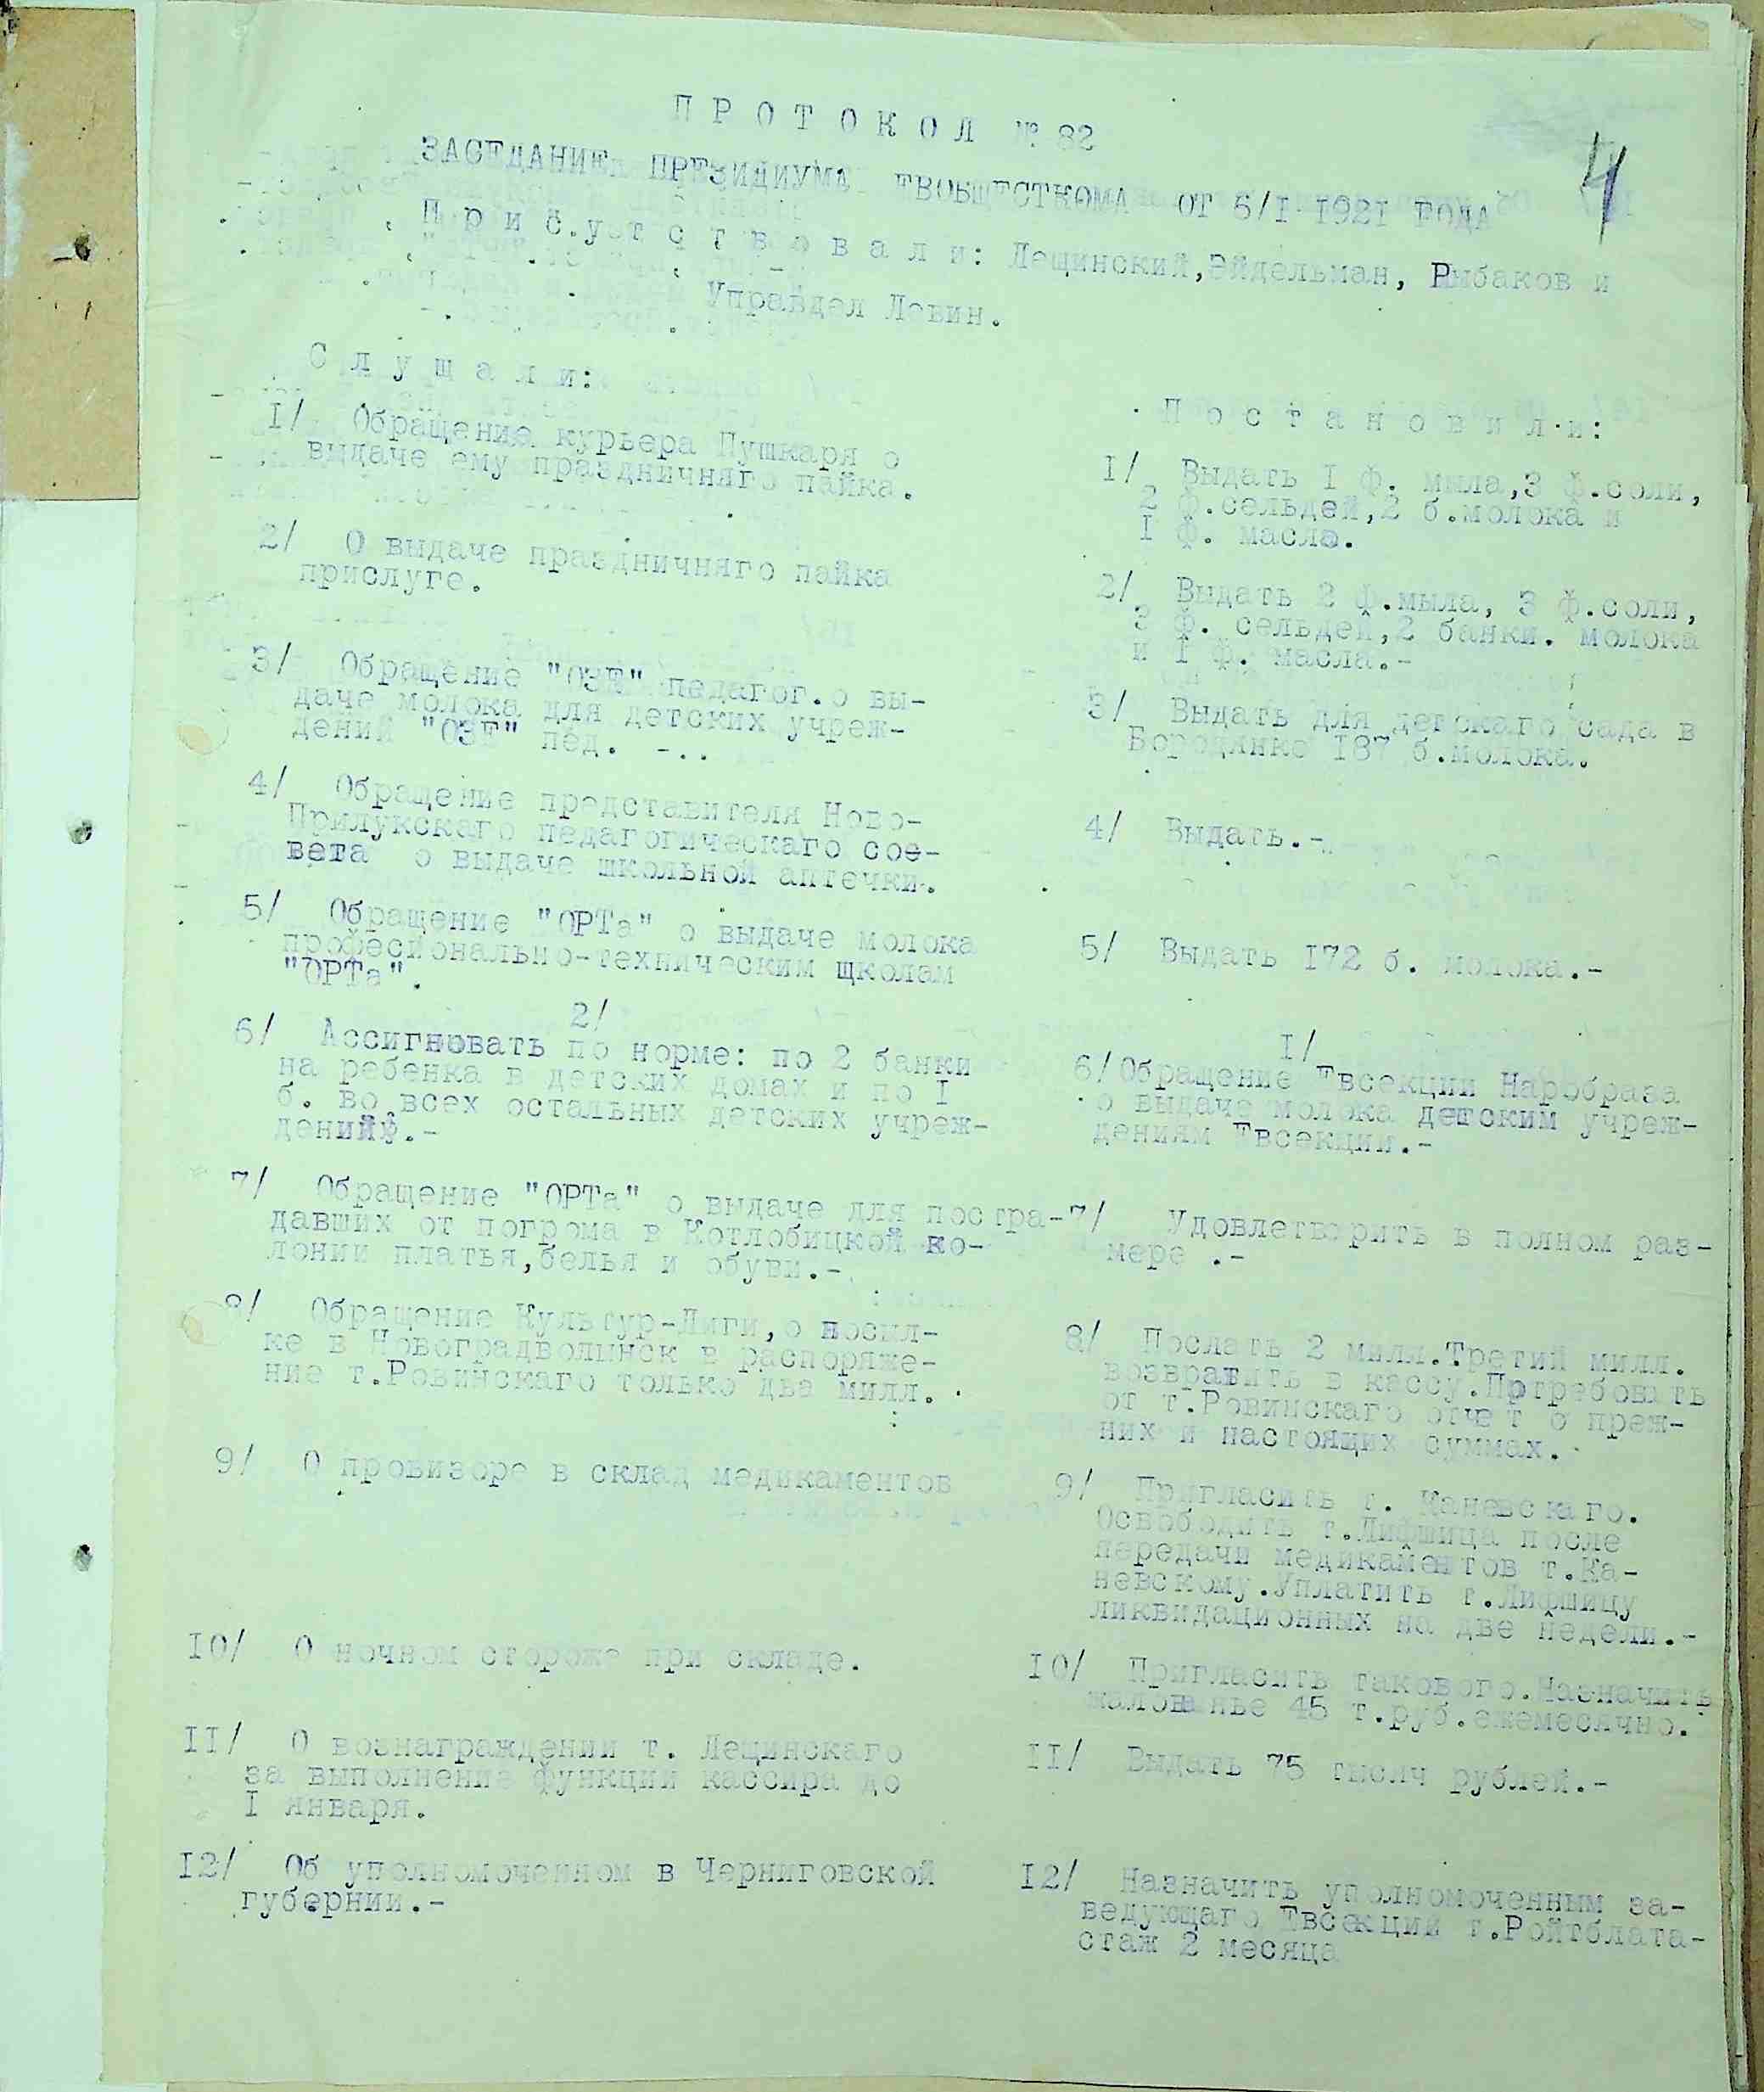 4
П Р О Т О К О Л № 82
ЗАСЕДАНИЕ ПРЕЗИДИУМА ЕВОБЩЕСТКОМА ОТ 5/I 1921 ГОДА
П р и с у т с т в о в а л и: Лещинский, Эйдельман, Рыбаков и
Управдел Левин.
С л у ш а л и:
1/ Обращение курьера Пушкаря о
выдаче ему праздничняго пайка.
2/ О выдаче праздничняго пайка
прислуге.
3/ Обращение "ОЗЕ" педагог. о вы-
даче молока для детских учреж-
дений "ОЗЕ" пед. -..
4/ Обращение представителя Ново-
Прилукскаго педагогическаго сое-
вета о выдаче школьной аптечки.
5/ Обращение "ОРТа" о выдаче молока
професионально-техническим школам
"ОРТа".
2/
6/ Ассигновать по норме: по 2 банки
на ребенка в детских домах и по I
б. во всех остальных детских учреж-
дений.-
7/ Обращение "ОРТа" о выдаче для постра-
давших от погрома в Котлобицкой ко-
лонии платья, белья и обуви.-
8/ Обращение Культур-Лиги, о посыл-
ке в Новоградволынск в распоряже-
ние т.Ровинскаго только два милл.
9/ О провизоре в склад медикаментов
10/ О ночном стороже при складе.
11/ О вознаграждении т. Лещинскаго
за выполнение функции кассира до
I января.
12/ Об уполномоченном в Черниговской
губернии.-
П о с т а н о в и л и:
1/ Выдать I ф. мыла, 3 ф.соли,
2 ф.сельдей, 2 б.молока и
I ф. масла.
2/ Выдать 2 ф.мыла, 3 ф.соли,
3 ф. сельдей, 2 банки. молока
и I ф. масла.-
3/ Выдать для детскаго сада в
Бородянке 187 б.молока.
4/ Выдать.-
5/ Выдать I72 б. молока.-
I/
6/ Обращение Евсекции Наробраза
о выдаче молока детским учреж-
дениям Евсекции.-
7/ Удовлетворить в полном раз-
мере .-
8/ Послать 2 милл.Третий милл.
возвратить в кассу.Потребовать
от т.Ровинскаго отчет о преж-
них и настоящих суммах.
9/ Пригласить т. Каневскаго.
Освободить т.Лифшица после
передачи медикаментов т.Ка-
невскому.Уплатить т.Лифшицу
ликвидационных на две недели.-
10/ Пригласить такового.Назначить
жалованье 45 т.руб.ежемесячно.
11/ Выдать 75 тысяч рублей.-
12/ Назначить уполномоченным за-
ведующаго Евсекции т.Ройтблата-
стаж 2 месяца